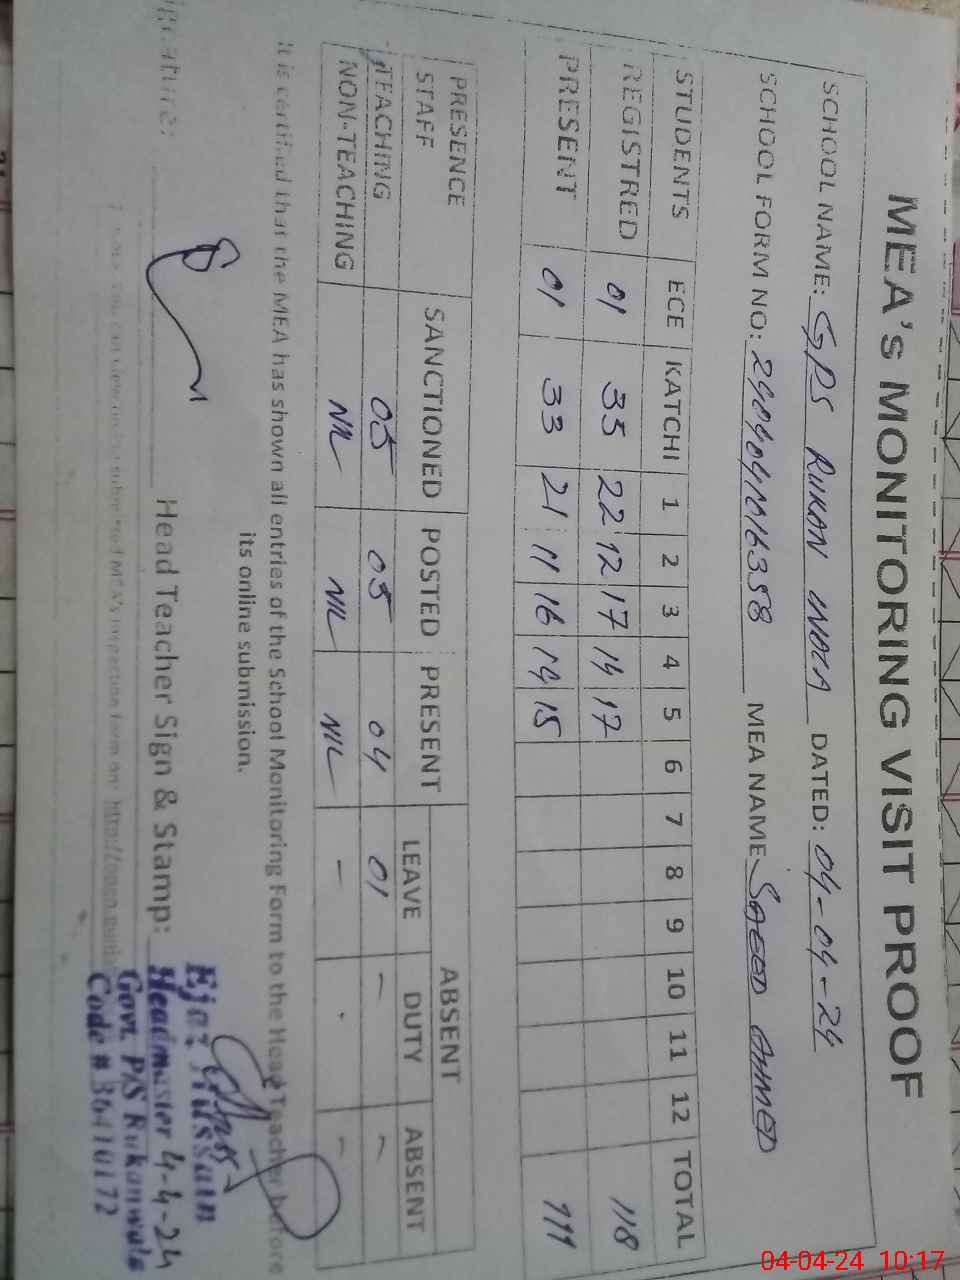 MEA's MONITORING VISIT PROOF
SCHOOL NAME: GPS RUKAN WALA DATED: 04-04-24
SCHOOL FORM NO: MEA NAME SAEED AHMED
STUDENTS ECE KATCHI 1 2 3 4 5 6 7 8 9 10 11 12 TOTAL
REGISTRED 01 35 22 12 17 14 17 118
PRESENT 01 33 21 11 16 14 15 111
PRESENCE STAFF SANCTIONED POSTED PRESENT ABSENT
LEAVE DUTY ABSENT
TEACHING 05 05 04 01 - -
NON-TEACHING NIL NIL NIL - . -
It is certified that the MEA has shown all entries of the School Monitoring Form to the Head Teacher before
its online submission.
Signature: Head Teacher Sign & Stamp:
Ejaz Hussain
Headmaster 4-4-24
Govt. P/S Rukanwala
Code # 36410172
you can view the submitted MEA's inspection form on: http://open.
04-04-24 10:17